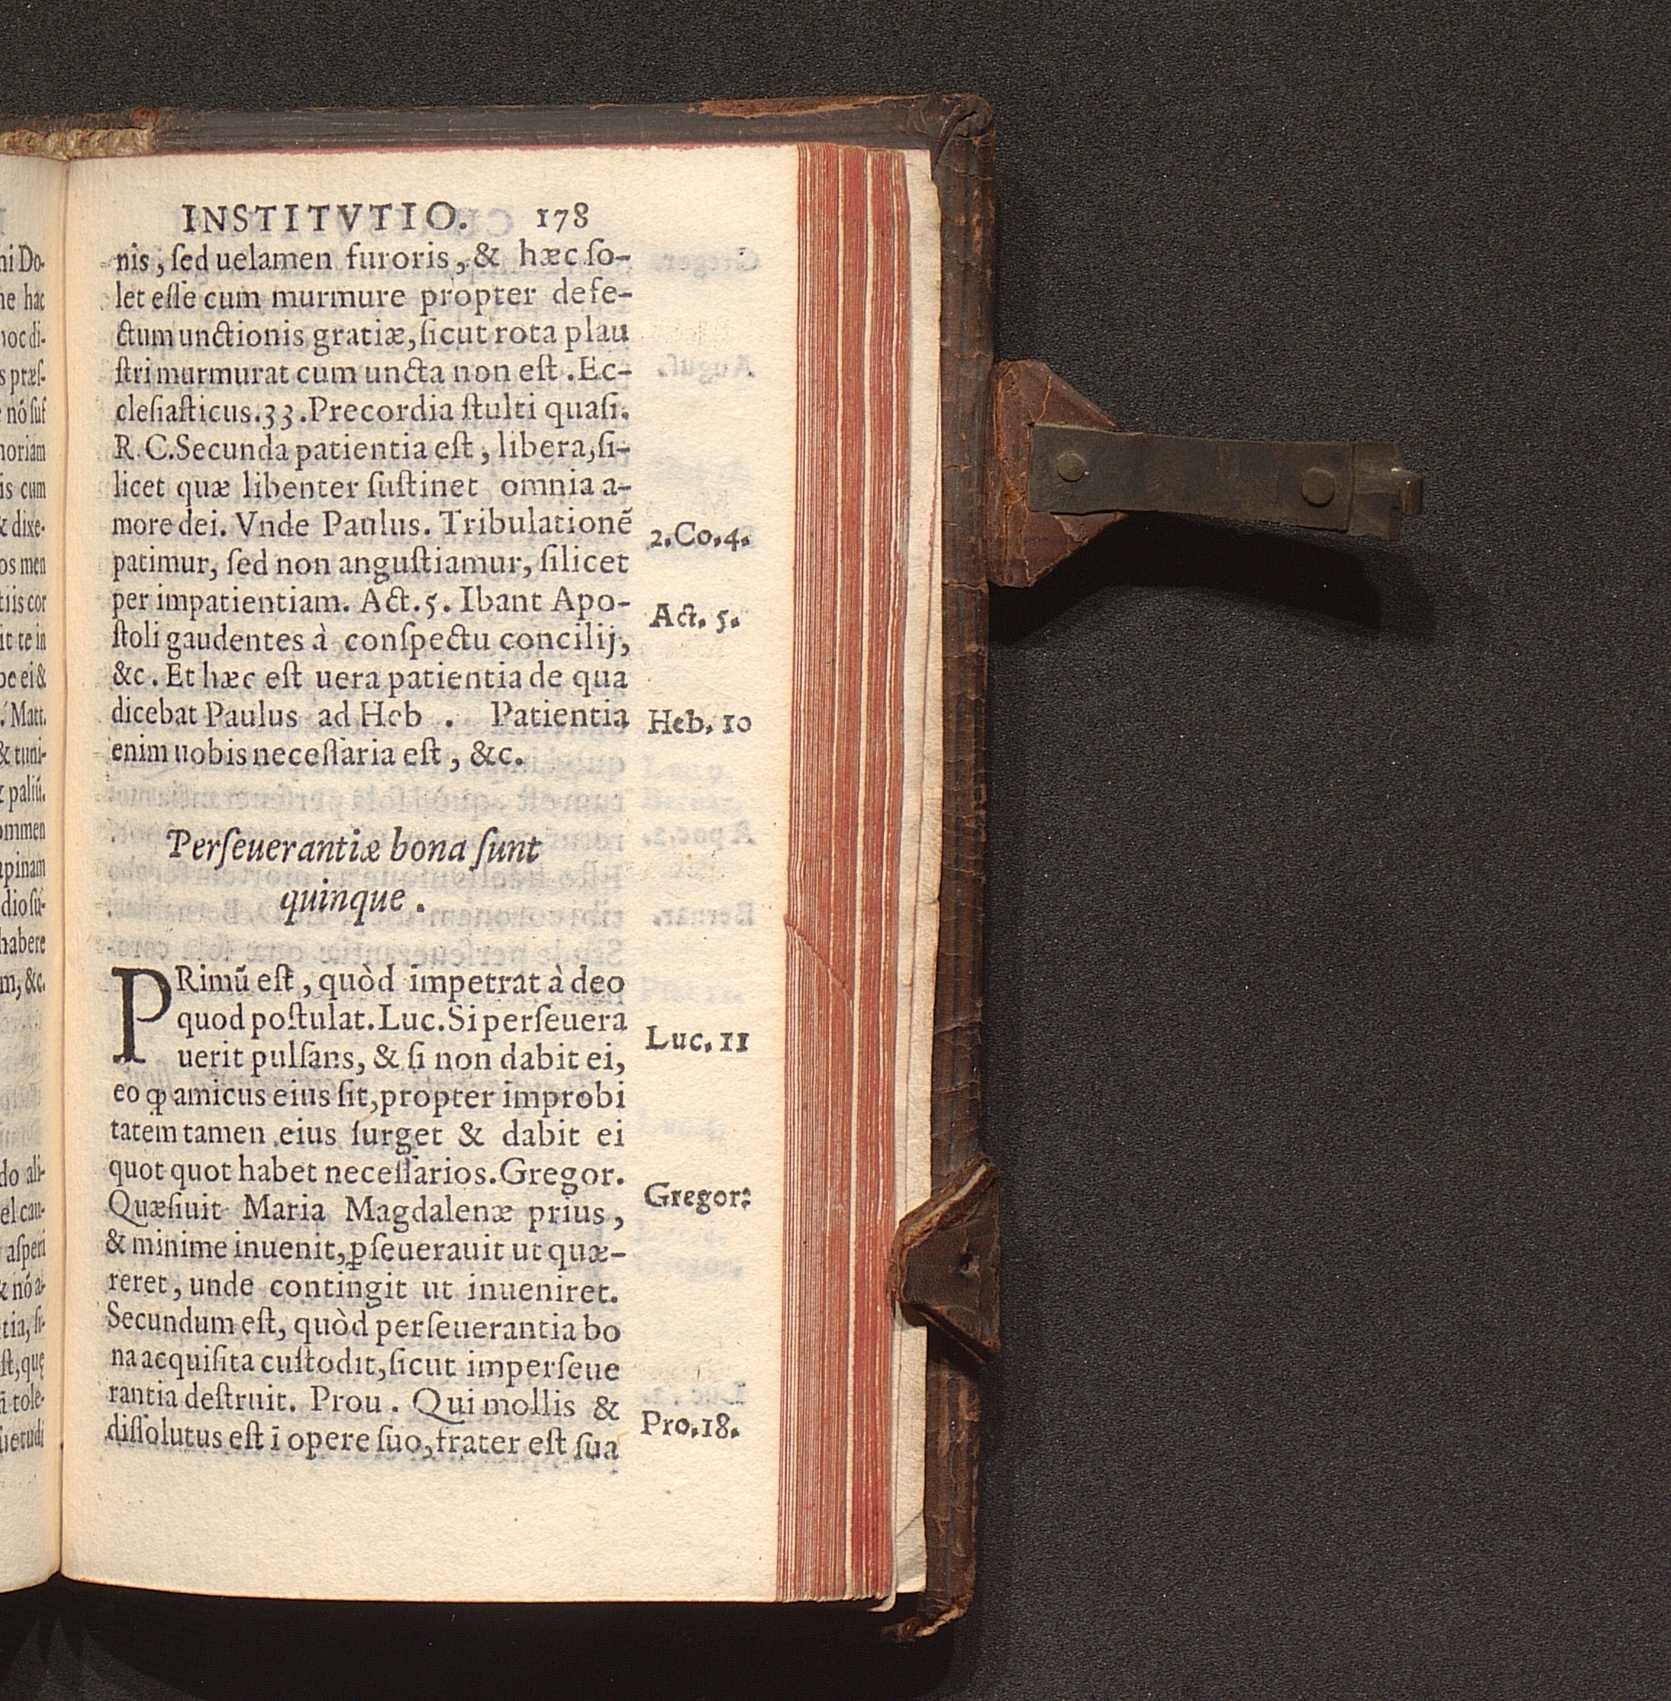 INSTITVTIO. 178
nis, ſed uelamen furoris, & hæc ſo-
let eſſe cum murmure propter defe-
ctum unctionis gratiæ, ſicut rota plau
ſtri murmurat cum uncta non eſt. Ec-
cleſiaſticus. 33. Precordia ſtulti quaſi.
R. C. Secunda patientia eſt, libera, ſi-
licet quæ libenter ſuſtinet omnia a-
more dei. Vnde Paulus. Tribulationẽ
2. Co. 4.
patimur, ſed non anguſtiamur, ſilicet
per impatientiam. Act. 5. Ibant Apo-
Act. 5.
ſtoli gaudentes à conſpectu concilij,
&c. Et hæc eſt uera patientia de qua
dicebat Paulus ad Heb . Patientia
Heb. 10
enim uobis neceſſaria eſt, &c.
Perſeuerantiæ bona ſunt
quinque.
PRimũ eſt, quòd impetrat à deo
quod poſtulat. Luc. Si perſeuera
Luc. 11
uerit pulſans, & ſi non dabit ei,
eo ꝙ amicus eius ſit, propter improbi
tatem tamen eius ſurget & dabit ei
quot quot habet neceſſarios. Gregor.
Gregor:
Quæſiuit Maria Magdalenæ prius,
& minime inuenit, ꝑſeuerauit ut quæ-
reret, unde contingit ut inueniret.
Secundum eſt, quòd perſeuerantia bo
na acquiſita cuſtodit, ſicut imperſeue
rantia deſtruit. Prou. Qui mollis &
Pro. 18.
diſſolutus eſt ĩ opere ſuo, frater eſt ſua